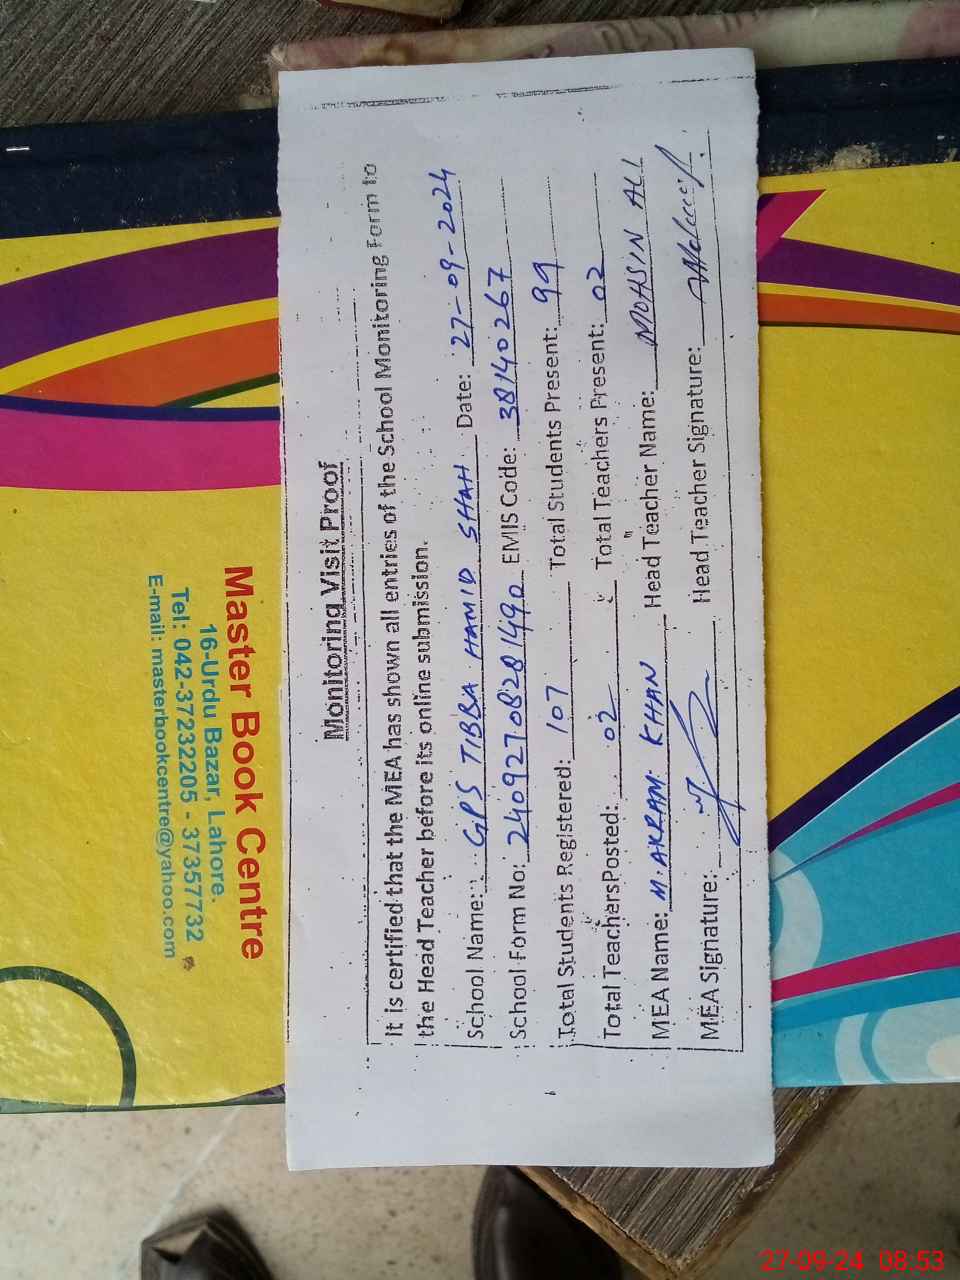 Monitoring Visit Proof
It is certified that the MEA has shown all entries of the School Monitoring Form to
the Head Teacher before its online submission.
School Name: GPS TIBBA HAMID SHAH Date: 27-09-2024
School Form No: 24092708281490 EMIS Code: 38140267
Total Students Registered: 107 Total Students Present: 99
Total TeachersPosted: 02 Total Teachers Present: 02
MEA Name: M. AKRAM KHAN Head Teacher Name: MOHSIN ALI
MEA Signature: Head Teacher Signature:
Master Book Centre
16-Urdu Bazar, Lahore.
Tel: 042-37232205 - 37357732
E-mail: masterbookcentre@yahoo.com
27-09-24 08:53